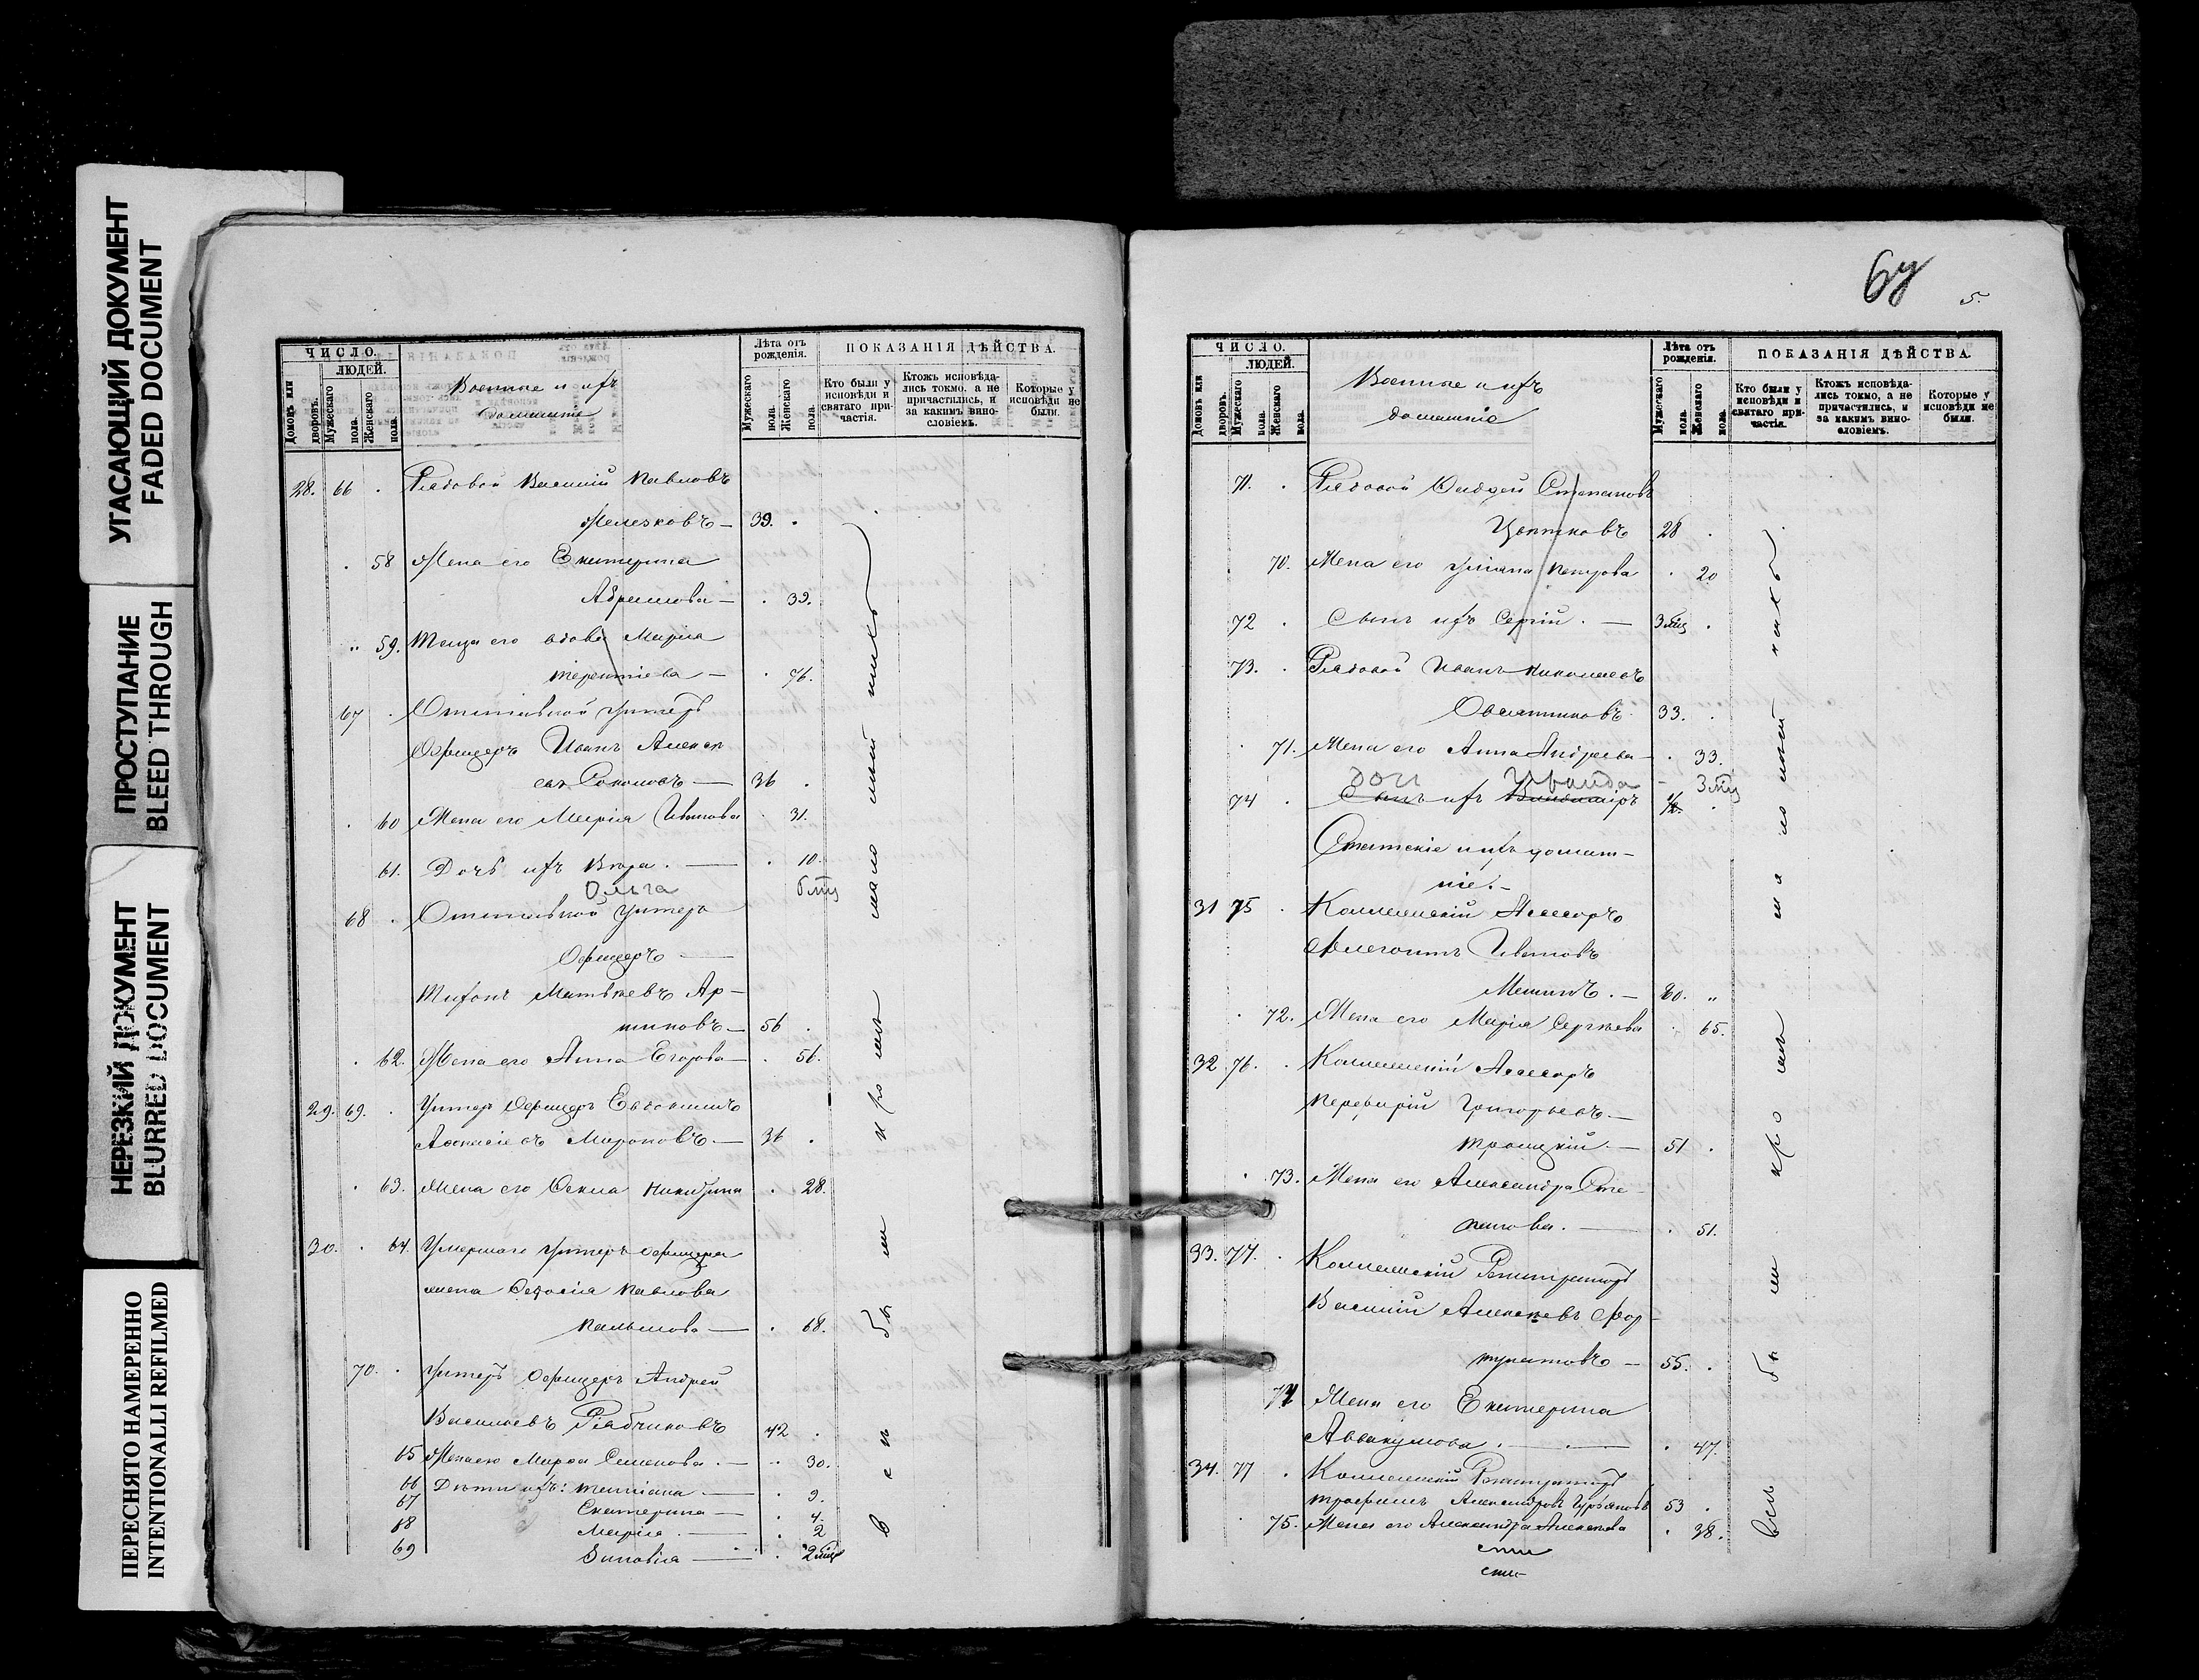 УГАСАЮЩИЙ ДОКУМЕНТ
FADED DOCUMENT
ПРОСТУПАНИЕ
BLEED THROUGH
НЕРЕЗКИЙ ДОКУМЕНТ
BLURRED DOCUMENT
ПЕРЕСНЯТО НАМЕРЕННО
INTENTIONALLI REFILMED
ЧИСЛО.
ЛЮДЕЙ.
Домовъ или дворовъ.
Мужескаго пола.
Женскаго пола.
Военные и ихъ
домашніе
Лѣта отъ рожденія.
Мужескаго пола.
Женскаго пола.
ПОКАЗАНІЯ ДѢЙСТВА.
Кто были у исповѣди и святаго причастія.
Ктожъ исповѣдались токмо, а не причастились, и за какимъ винословіемъ.
Которые у исповѣди не были.
28. 66 . Рядовой Василій Павловъ
Железковъ — 39. .
. 58 Жена его Екатерина
Абрамова — . 39.
" 59. Теща его вдова Марія
Терентіева — . 76.
67 . Отставной Унтеръ
Офицеръ Иванъ Алексѣ
евъ Соколовъ — 36 .
. 60 Жена его Марія Иванова . 31.
61. Дочь ихъ Вѣра. — . 10.
Ольга 6 мц
68 . Отставной Унтеръ
Офицеръ —
Тихонъ Матвѣевъ Ар-
56 .
. 62. Жена его Анна Егорова — . 56.
29. 69. . Унтеръ Офицеръ Евдокимъ
Аѳанасіевъ Мироновъ. — 36 .
. 63. Жена его Ѳекла . 28.
30. . 64. Умершаго Унтеръ Офицера
жена Ѳедосія Павлова
— . 68.
70. . Унтеръ Офицеръ Андрей
Васильевъ Рябчиковъ 42 .
65 Жена его Марѳа Семенова. — 30.
66 Дѣти ихъ: Татіана — . 9.
67 Екатерина — . 4.
68 Марія . — . 2
69 Зиновія — . 2 мц
64 5.
ЧИСЛО.
ЛЮДЕЙ.
Домовъ или дворовъ.
Мужескаго пола.
Женскаго пола.
Военные и ихъ
домашніе
Лѣта отъ рожденія.
Мужескаго пола.
Женскаго пола.
ПОКАЗАНІЯ ДѢЙСТВА.
Кто были у исповѣди и святаго причастія.
Ктожъ исповѣдались токмо, а не причастились, и за какимъ винословіемъ.
Которые у исповѣди не были.
71. . Рядовой Андрей Степановъ
Цвѣтковъ 28 .
. 70. Жена его Петрова . 20
72 . Сынъ ихъ Сергій. — 3 мц .
73. . Рядовой Иванъ Николаевъ
Овсянниковъ 33. .
. 71. Жена его Анна Андреева — . 33.
дочь Ираида - 3 мц
74 . Сынъ ихъ Владиміръ
Статскіе и ихъ домаш-
ніе.-
31 75 . Коллежскій Ассесоръ
Флегонтъ Ивановъ
— 80. "
. 72. Жена его Марія Сергѣева . 65.
32 76. . Коллежскій Ассесоръ
Порфирій Григорьевъ. —
Троицкій. — 51 .
. 73. Жена его Александра Сте-
панова. — . 51.
33. 77. . Коллежскій Регистраторъ
Василій Алексѣевъ Фор-
тунатовъ — 55. .
74 Жена его Екатерина
Аввакумова. — . 47.
34. 77 . Коллежскій Регистраторъ
Трофимъ Александровъ 53 .
. 75. Жена его Александра Алексѣева . 38.